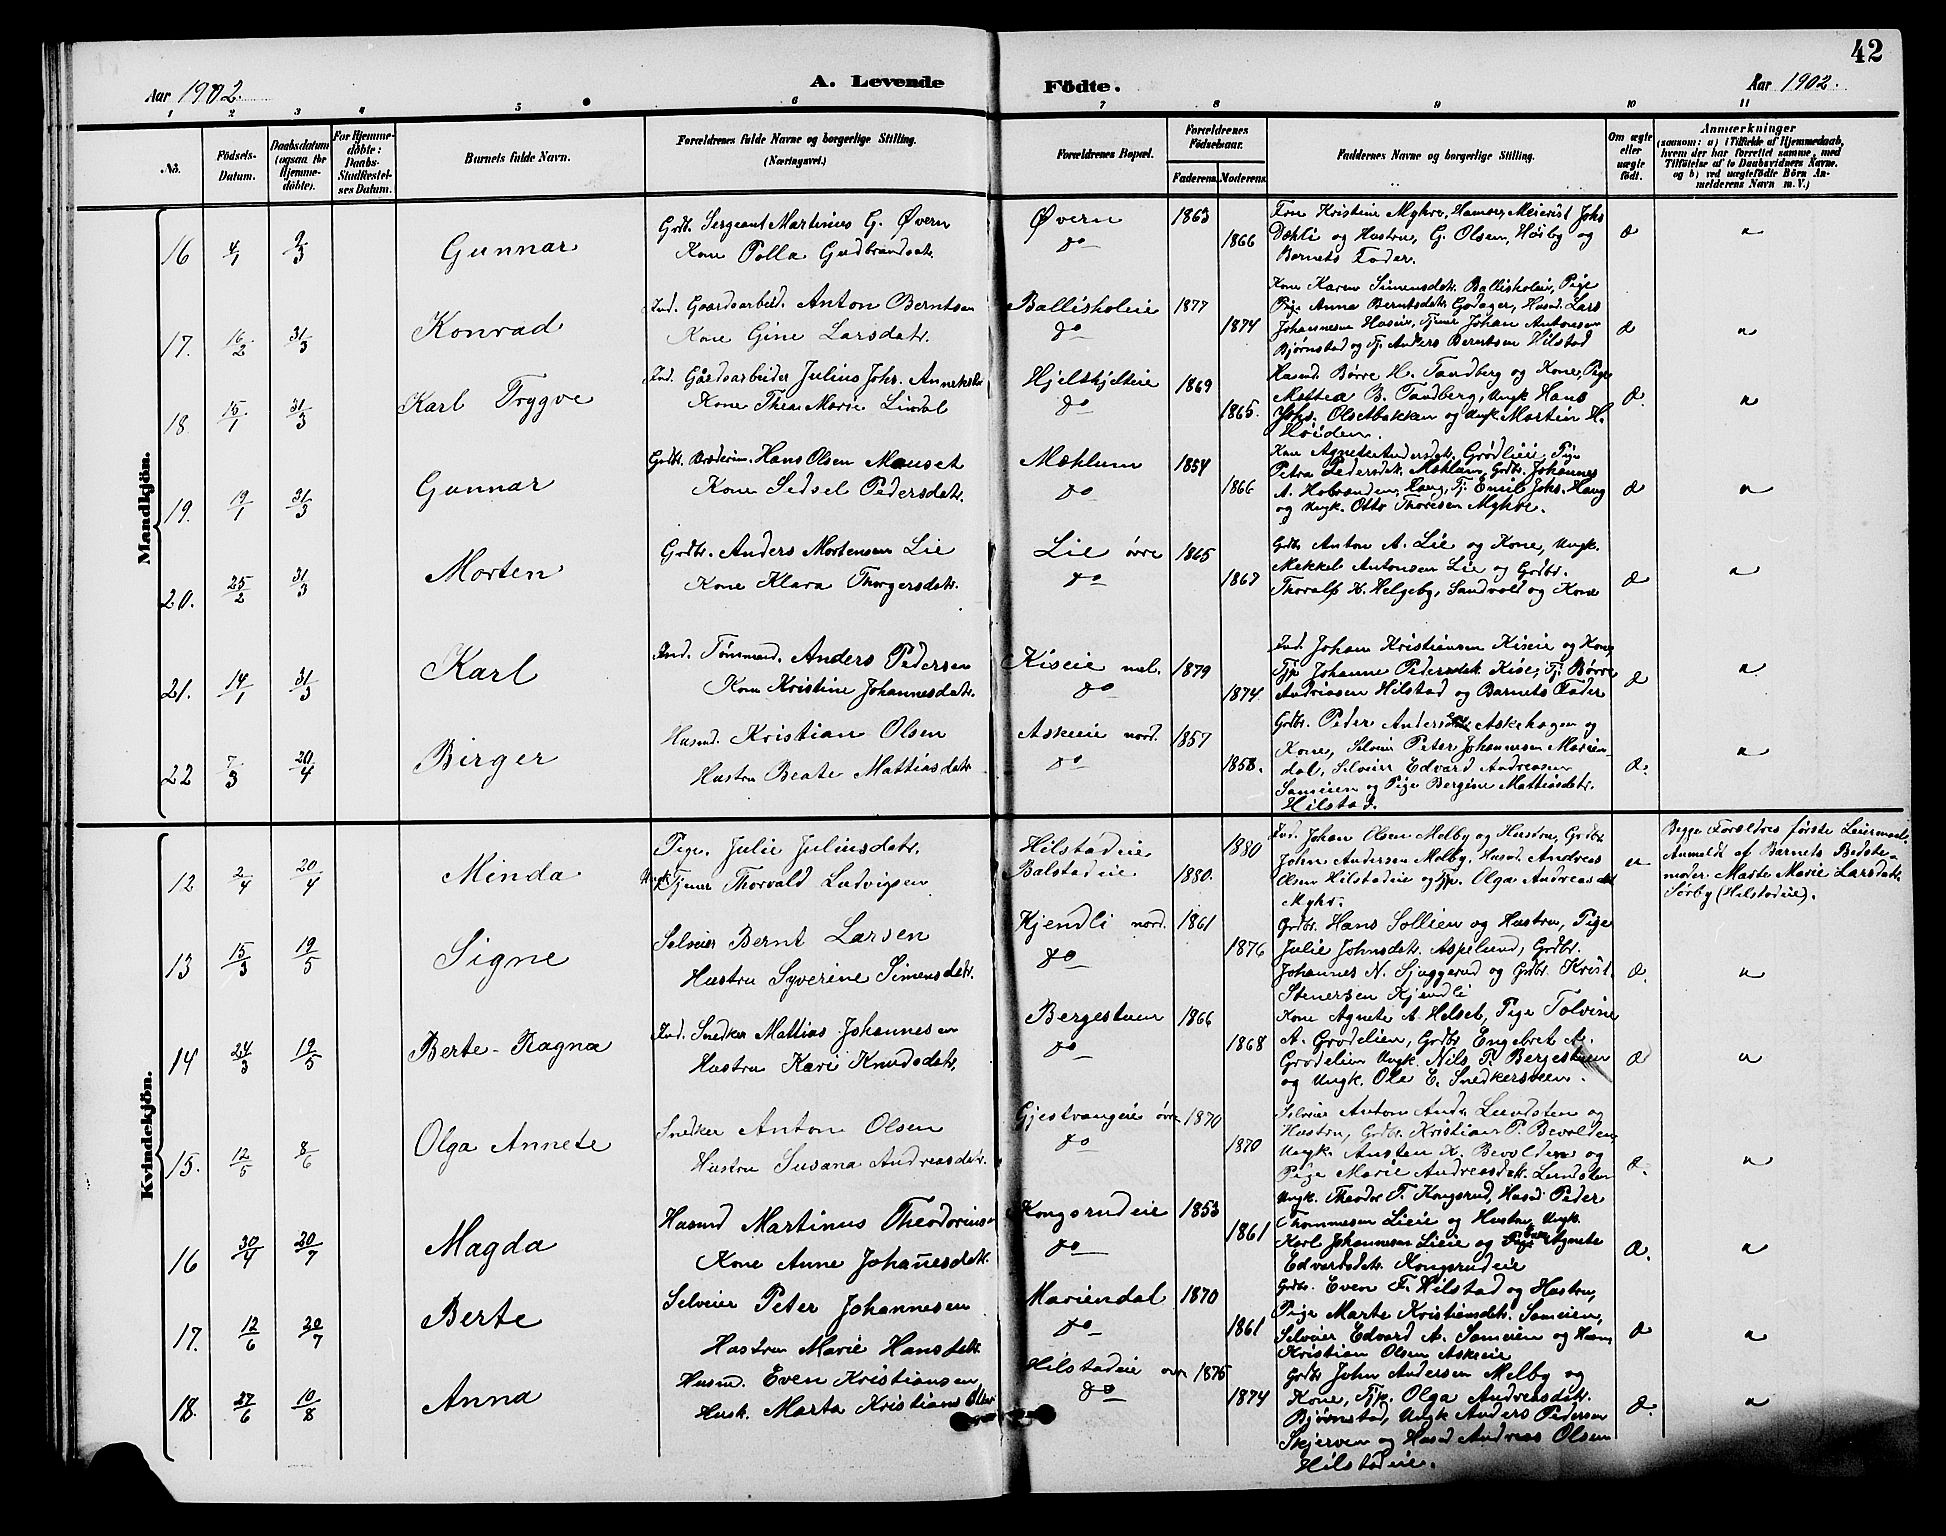 42
Aar 1902.
A. Levende
Födte.
Aar 1902.
1 2 3 4 5 6 7 8 9 10 11
No.
Födsels-
Datum.
Daabsdatum
(ogsaa for
Hjemme-
döbte).
For Hjemme-
döbte:
Daabs-
Stadfæstel-
ses Datum.
Barnets fulde Navn.
Forældrenes fulde Navne og borgerlige Stilling.
(Næringsvei.)
Forældrenes Bopæl.
Forældrenes
Födselsaar.
Faderens.
Moderens.
Faddernes Navne og borgerlige Stilling.
Om ægte
eller
uægte
født.
Anmærkninger
(saasom: a) i Tilfælde af Hjemmedaab,
hvem der har forrettet samme, med
Tilföielse af to Daabsvidners Navne.
og b) ved uægtefödte Börn An-
melderens Navn m. V.)
Mandkjön.
16 4/1 9/3 Gunnar
Grdb. Sergeant Martinus G. Øvern
Kone Polla Gudbrandsdt.
Øvern
do
1863
1866
Frue Kristine Myhre, Meierist Johs
Dæhli og Hustru, G. Olsen, Høiby og
Barnets Fader.
Æ
"
17. 16/2 31/3 Konrad
Ind. Gaardsarbeid. Anton Berntsen
Kone Gine Larsdatr.
Ballisholeie
do
1877
1874
Kone Karen Simensdatr. Ballisholeie, Pige
Pige Anna Berntsdatr. Godager, Husmd. Lars
Johannesen Huseie, Tjener Johan Antonsen
Bjørnstad og Tj. Anders Berntsen Hilstad
Æ
"
18. 15/1 31/3 Karl Trygve
Ind. Gårdsarbeider Julius Johs.
Kone Thea Marie Lindal
Hjelshjleie
do
1869
1865.
Husmd. Børre H. Tandberg og Kone, Pige
Mathea B. Tandberg, Ungk Hans
Johs. Olsetbakken og Ungk Martin H.
Høiden.
Æ.
"
19. 19/1 31/3 Gunnar
Grdb. Hans Olsen Mauset
Kone Sidsel Pedersdatr.
Mæhlum
do
1854
1866
Kone Agnethe Andersdatr. Grødlieie, Pige
Petra Pedersdatr. Mæhlum, Grdb. Johannes
A. Haug, Tj. Emil Johs. Haug
og Ungk. Otto Thoresen Myhre.
Æ
"
20. 25/2 31/3 Morten
Grdbr. Anders Mortensen Lie
Kone Klara Thorgersdatr.
Lie øvre
do
1865
1867
Grdb Anton A. Lie og Kone, Ungk.
Mikkel Antonsen Lie og Grdbr.
Thoralf K. Helgeby, Sandvold og Kone
Æ
"
21. 14/1 31/3 Karl
Ind. Tømmermd. Anders Pedersen
Kone Kristine Johannesdatr.
Kiseie mel.
do
1879
1874
Ind. Johan Kristiansen Kiseie og Kone
Tjp Johanne Pedersdatr. Kise, Tj. Børre
Andreasen Hilstad og Barnets Fader
Æ
"
22 7/3 20/4 Birger
Husmd. Kristian Olsen
Hustru Beate Mattiasdatr
Askeie nord.
do
1857
1858.
Grdbr. Peder Andersen Askehagen og
Kone, Selveier Peter Johannesen Marien-
dal, Selveier Edvard Andreasen
Sameien og Pige Bergine Mattiasdatr.
Hilstad.
Æ.
"
Kvindekjön.
12 2/4 20/4 Minda
Pige. Julie Juliusdatr.
Ungk. Tjener Thorvald Ludvigsen
Hilstadeie
Balstadeie
1880
1880.
Ind. Johan Olsen Melby og Hustru, Grdbr
John Andersen Melby, Husmd. Andreas
Olsen Hilstadeie og Tjp. Olga Andreasdatr
Myhr.
u
Begge Forældres første Leiermaal.
Anmeldt af Barnets Bedste-
moder Marte Marie Larsdatr.
Sørby (Hilstadeie).
13 15/3 19/5 Signe
Selveier Bernt Larsen
Hustru Syverine Simensdatr.
Kjendli nord.
do
1861
1876
Grdbr. Hans Sollien og Hustru, Pige
Julie Johnsdatr. Aspelund, Grdbr.
Johannes N. Sjuggerud og Grdbr. Krist.
Stenersen Kjendli
Æ.
"
14 24/3 19/5 Berte-Ragna
Ind. Snedker Mattias Johannesen
Hustru Kari Knudsdatr.
Bergestuen
do
1866
1868
Kone Agnete A. Helset, Pige Tolvine
A. Grødelien, Grdbr Engebret A.
Grødelien Ungk. Nils P. Bergestuen
og Ungk. Ole E. Snedkersveen.
Æ
"
15. 12/5 8/6 Olga Annete
Snedker Anton Olsen
Hustru Susana Andreasdatr.
Gjestvangeie øvre
do
1870
1870
Selveier Anton Andr. Lundsten og
Hustru, Grdbr. Kristian P. Bevolden,
Ungk. Austen K. Bevolden og
Pige Marie Andreasdatr. Lundsten
Æ.
"
16 30/4 20/7 Magda
Husmd Martinus Theodoriusen
Kone Anne Johañesdatr.
Kongsrudeie
do
1853
1861
Ungk. Theodor T. Kongsrud, Husmd Peder
Thommesen Lieie og Hustru, Ungk.
Karl Johannesen Lieie og Pige Agnete
Edvardsdatr. Kongsrudeie
Æ.
"
17. 12/6 20/7 Berte
Selveier Peter Johannesen
Hustru Marie Hansdatr.
Mariendal
do
1870
1861
Grdbr. Even F. Hilstad og Hustru,
Pige Marte Kristiansdatr. Sameien,
Selveier Edvard A. Sameien og Husmd
Kristian Olsen Askeeie
Æ
"
18. 27/6 10/8 Anna
Husmd. Even Kristiansen
Husk. Marta Kristiansdatter
Hilstadeie
do
1875
1874
Grdbr John Andersen Melby og
Kone, Tjp. Olga Andreasdatr.
Bjørnstad, Ungk Anders Pedersen
Skjerven og Husmd Andreas Olsen
Hilstadeie.
Æ.
"